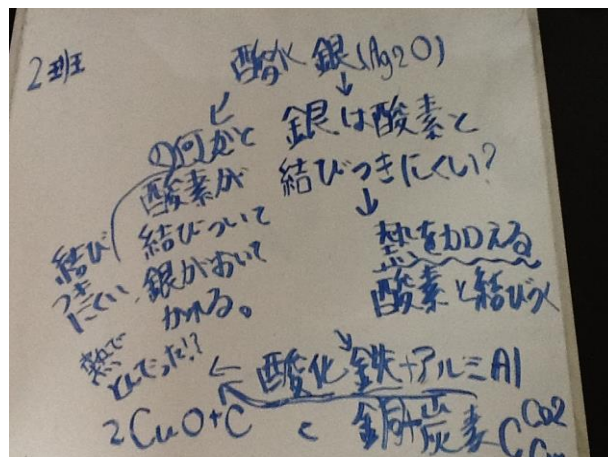 2班
酸化 銀(Ag2O)
銀は酸素と
結びつきにくい?
熱を加える
酸素と結びつく
の何かと
酸素が
結びついて
銀がおいて
かれる。
結び
つき
にくい
熱で
とんでった!?
酸化 鉄+アルミ Al
2CuO+C
銅+炭素 C CO2
Cu